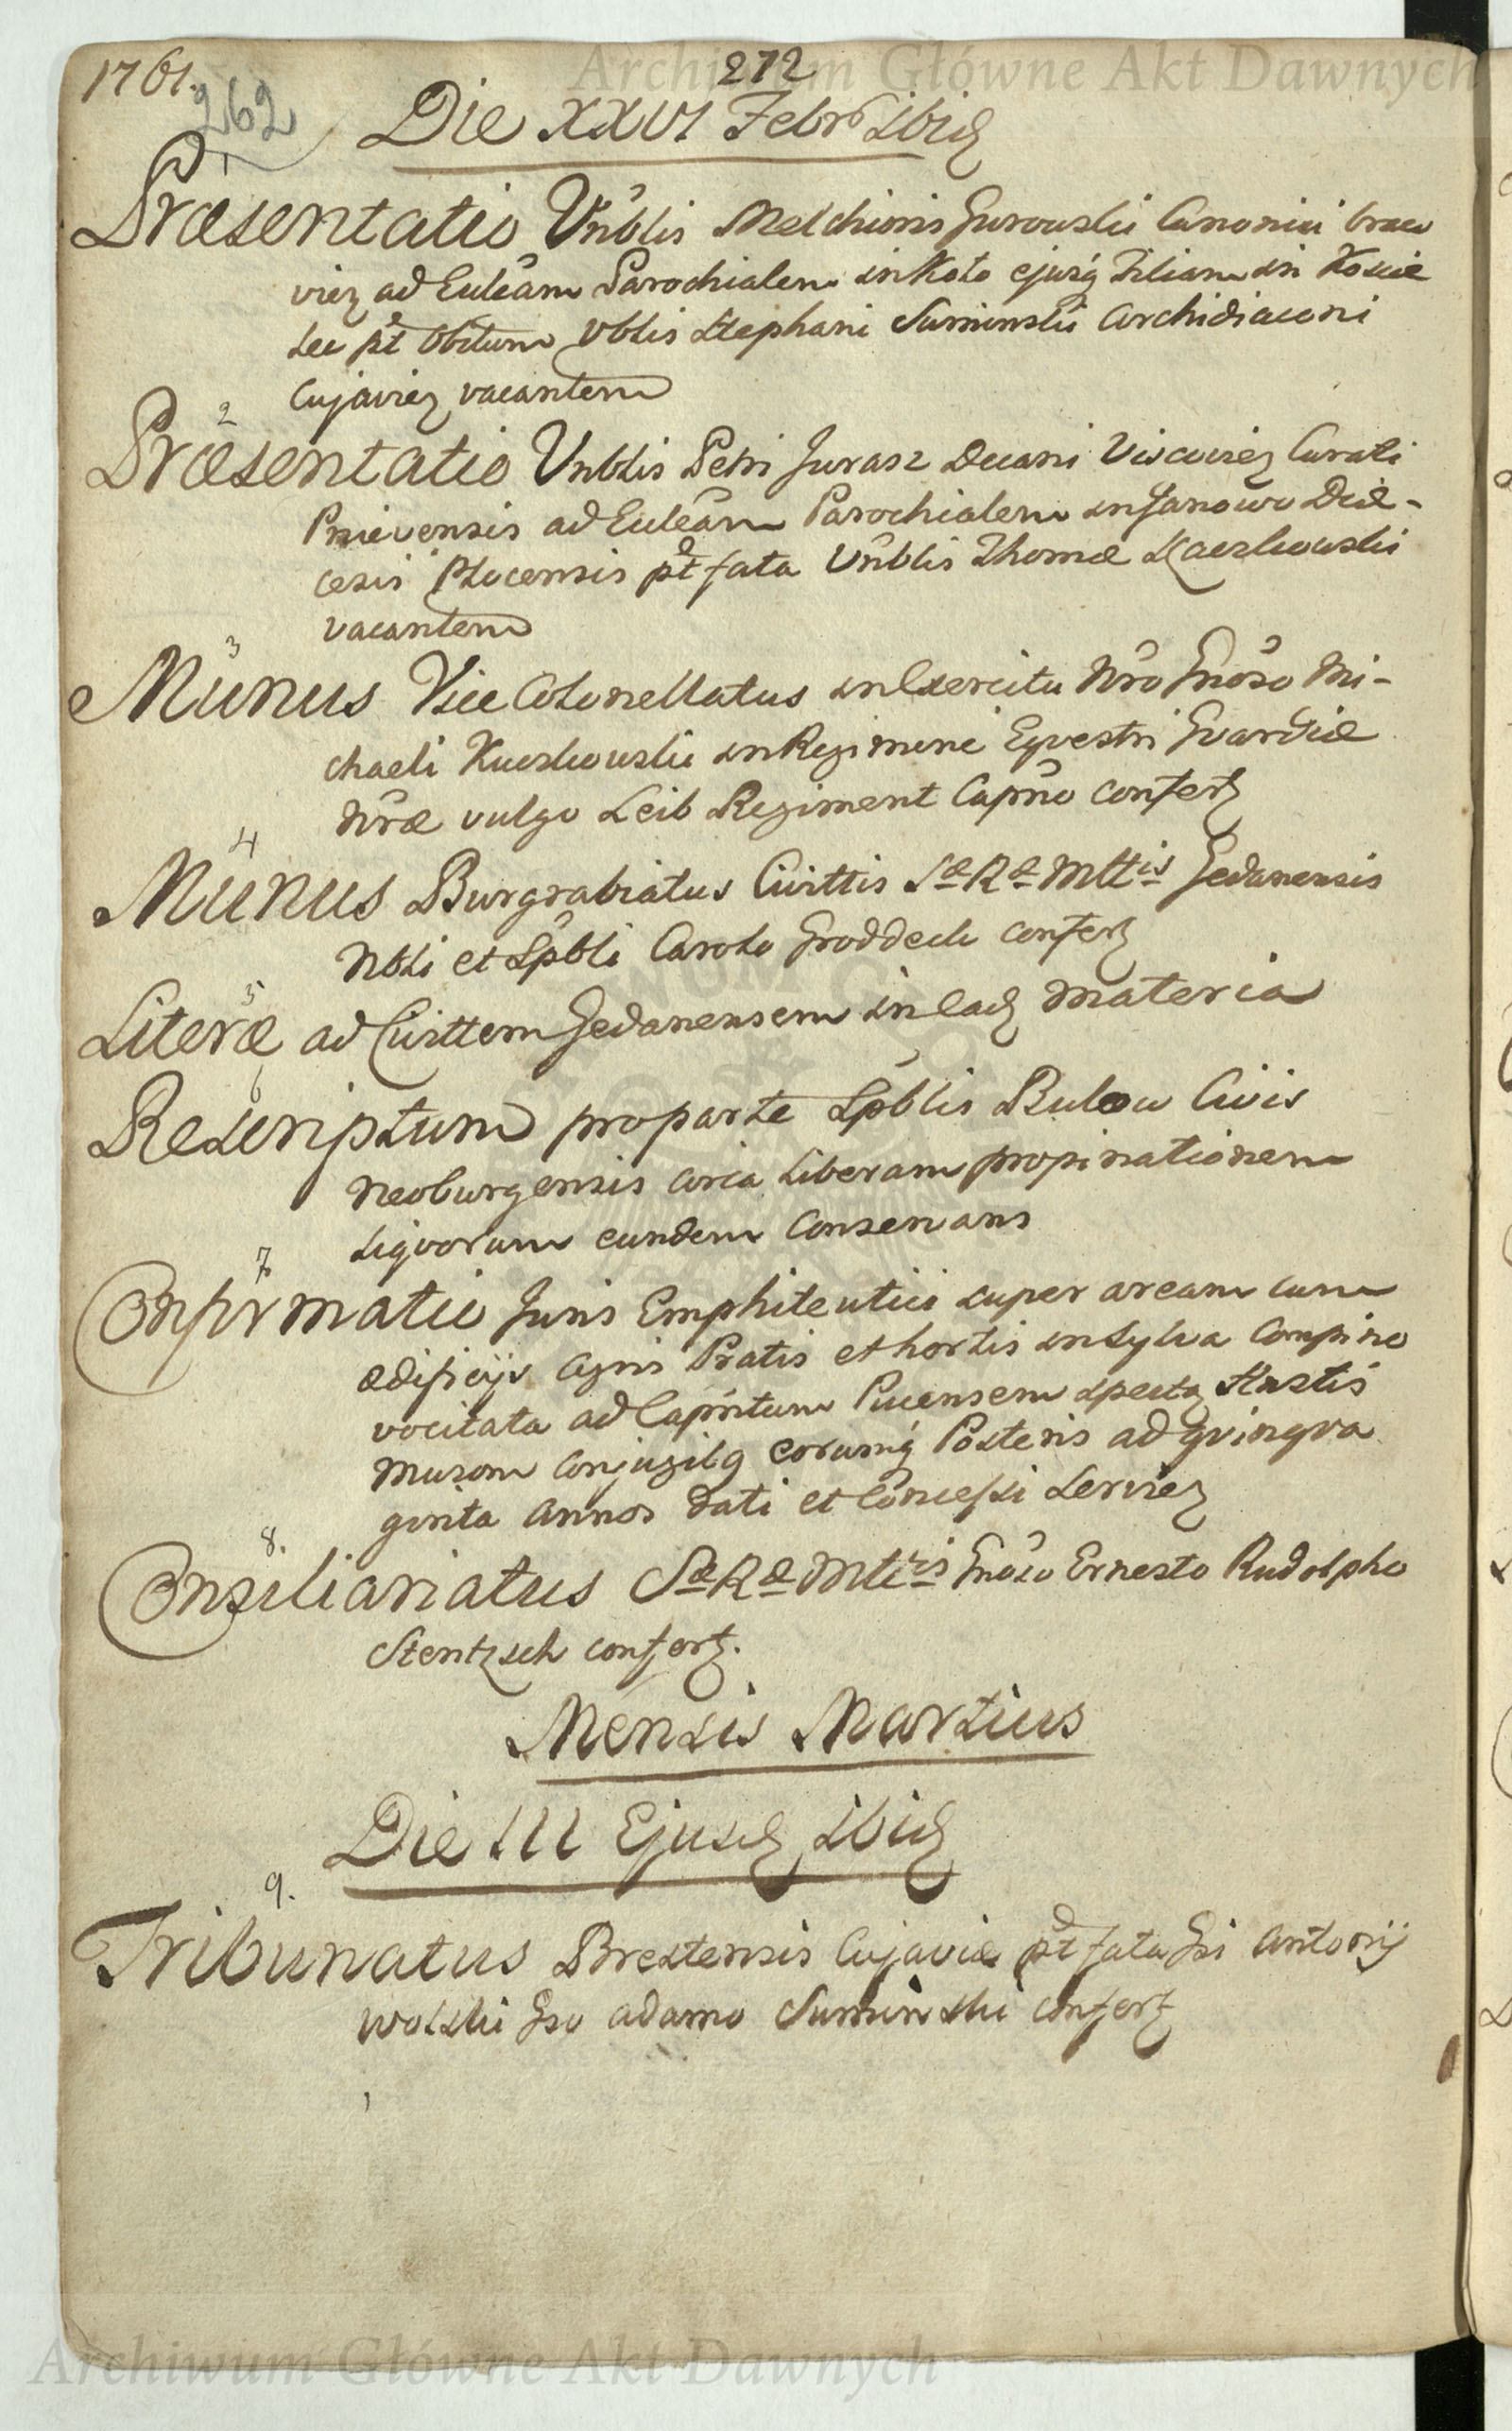 Archiwum Główne Akt Dawnych
1761.
272
262
Die XXVI Febr Ibid
1
Præsentatio Vnblis Melchioris Gurowski Canonici Craco
vien ad Eccleam Parochialem in Koło ejusq Filiam in Koscie
lec pt Obitum Vblis Stephani Suminski Archidiaconi
Cujavien vacantem
2
Præsentatio Vnblis Petri Jurasz Decani Viscovien Curati
Pniewensis ad Eccleam Parochialem in Janowo Diæ-
cesis Plocensis pt fata Vnblis Thomæ Kaczkowski
vacantem
3
Munus Vice Colonellatus in Exercitu Nro Gnoso Mi-
chaeli Kuczkowski in Regimine Eqvestri Gvardiæ
Nræ vulgo Leib Regiment Capno confert
4
Munus Burgrabiatus Civittis Sæ Ræ Mttis Gedanensis
Nbli et Spbli Carolo Groddeck confert
5
Literæ ad Civittem Gedanensem in Ead materia
6
Rescriptum pro parte Spblis Bulow Civis
Neoburgensis circa Liberam propinationem
Liqvorum eundem Conservans
7
Confirmatio Juris Emphiteutici super aream cum
ædificijs Agris Pratis et hortis in Sylva Compino
vocitata ad Capntum Pucensem spectan
Muzom Conjugibq eorumq Posteris ad qvinqva
ginta Annos dati et Concessi Servien
8.
Consiliariatus Sæ Ræ Mttis Gnoso Ernesto Rudolpho
Stentzsch confert.
Mensis Martius
Die III Ejusd Ibid
9.
Tribunatus Brestensis Cujaviæ pt fata Gsi Antonij
Wolski Gso Adamo Suminski confert
Archiwum Główne Akt Dawnych